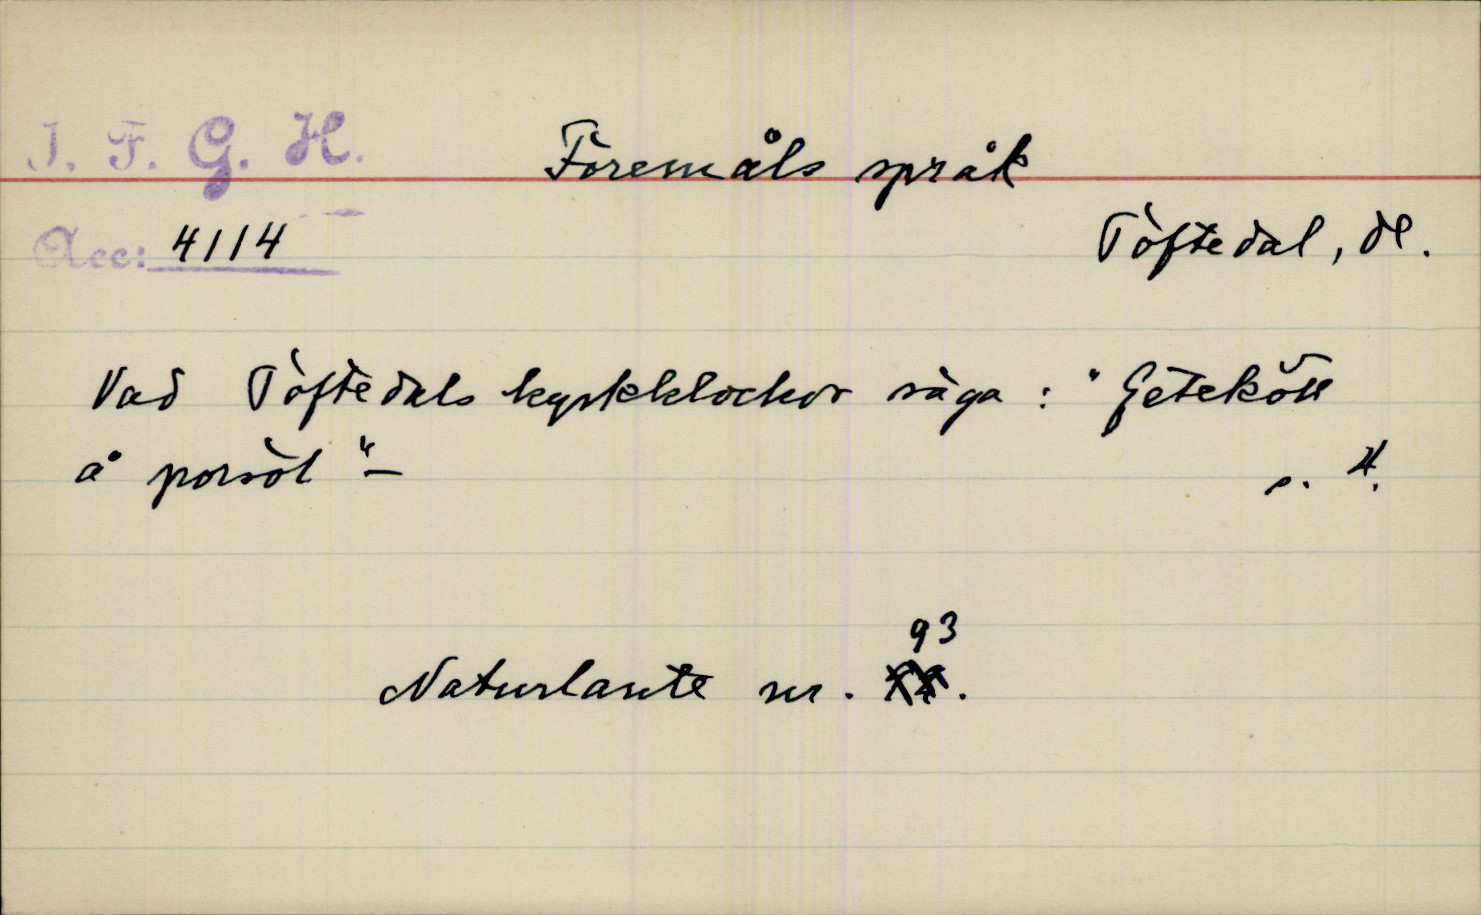 I. F. G. H.
Föremåls språk
Acc: 4114
Töftedal, Dl.
Vad Töftedals kyrkklockor säga: "Getekött
å porsöl"—
s. 4.
93
Naturlaute nr.